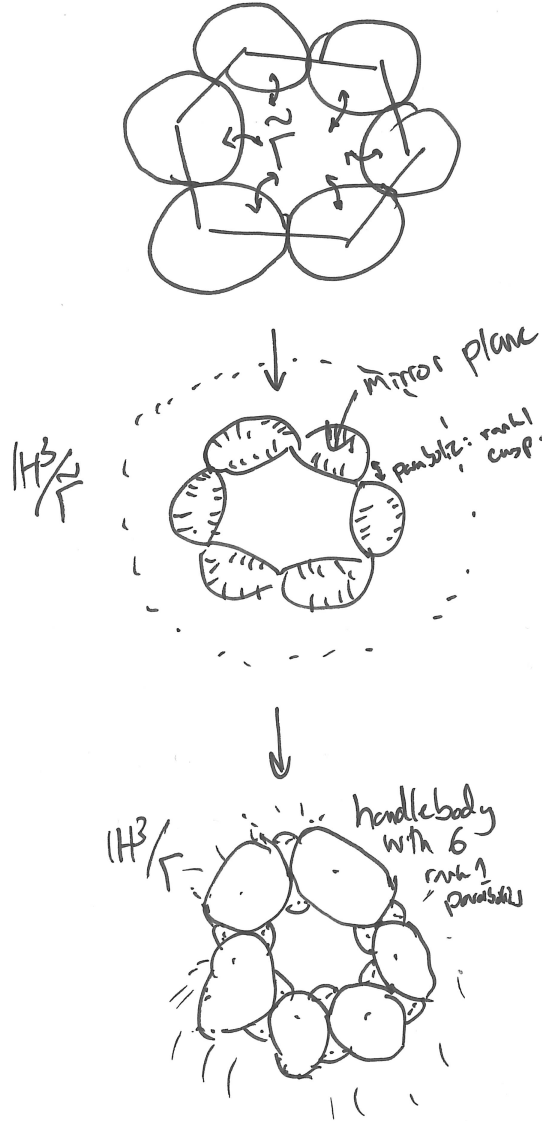 Γ̃
mirror plane
parabolic: rank 1
cusp.
ℍ³/Γ̃
handlebody
with 6
rank 1
parabolics
ℍ³/Γ